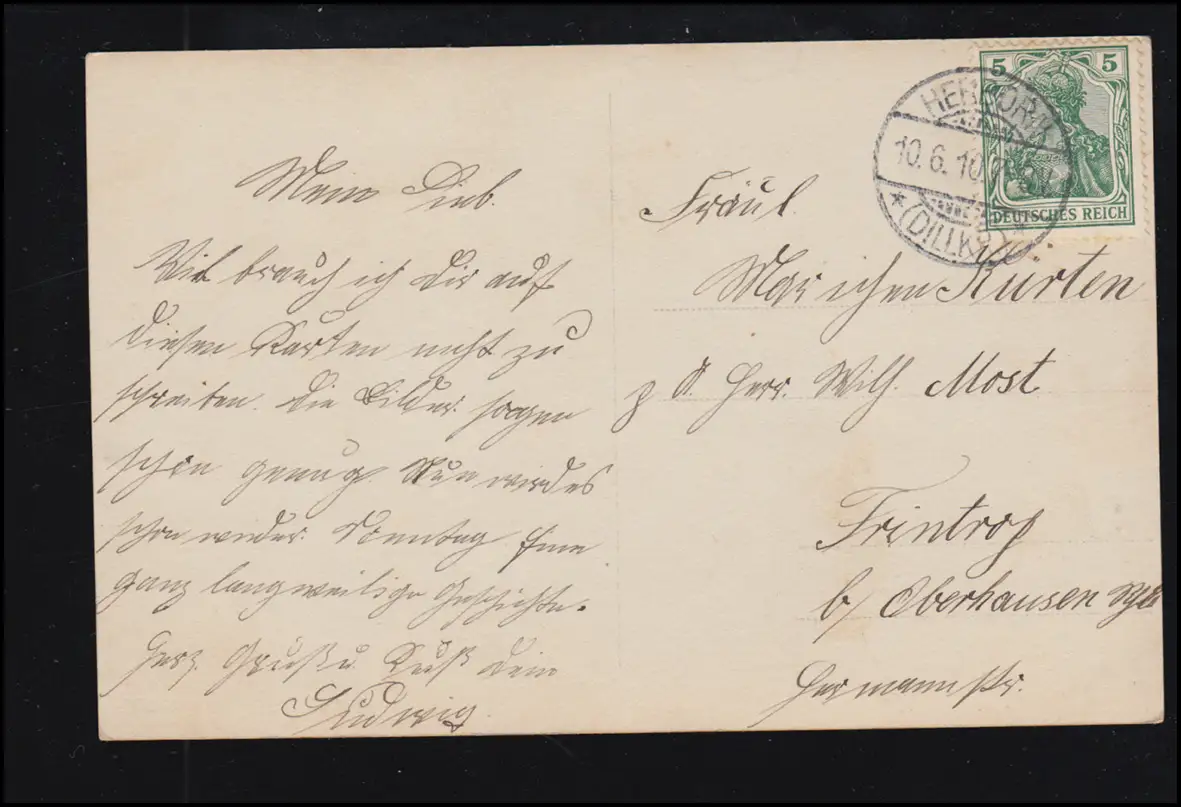 Mein Lieb.
Viel brauch ich Dir auf
diesen Karten nicht zu
schreiben. Die Bilder sagen
schon genug. Nun wird es
schon wieder Sonntag. Eine
ganz langweilige Geschichte.
Herz. Gruß u. Kuß Dein
Ludwig.
5 5
DEUTSCHES REICH
HERBORN
10.6.10.
* (DILLKR.) *
Fräul.
Mariechen Kurten
p. A. Herr. Wilh. Most
Frintrop
b/ Oberhausen
Hermannstr.